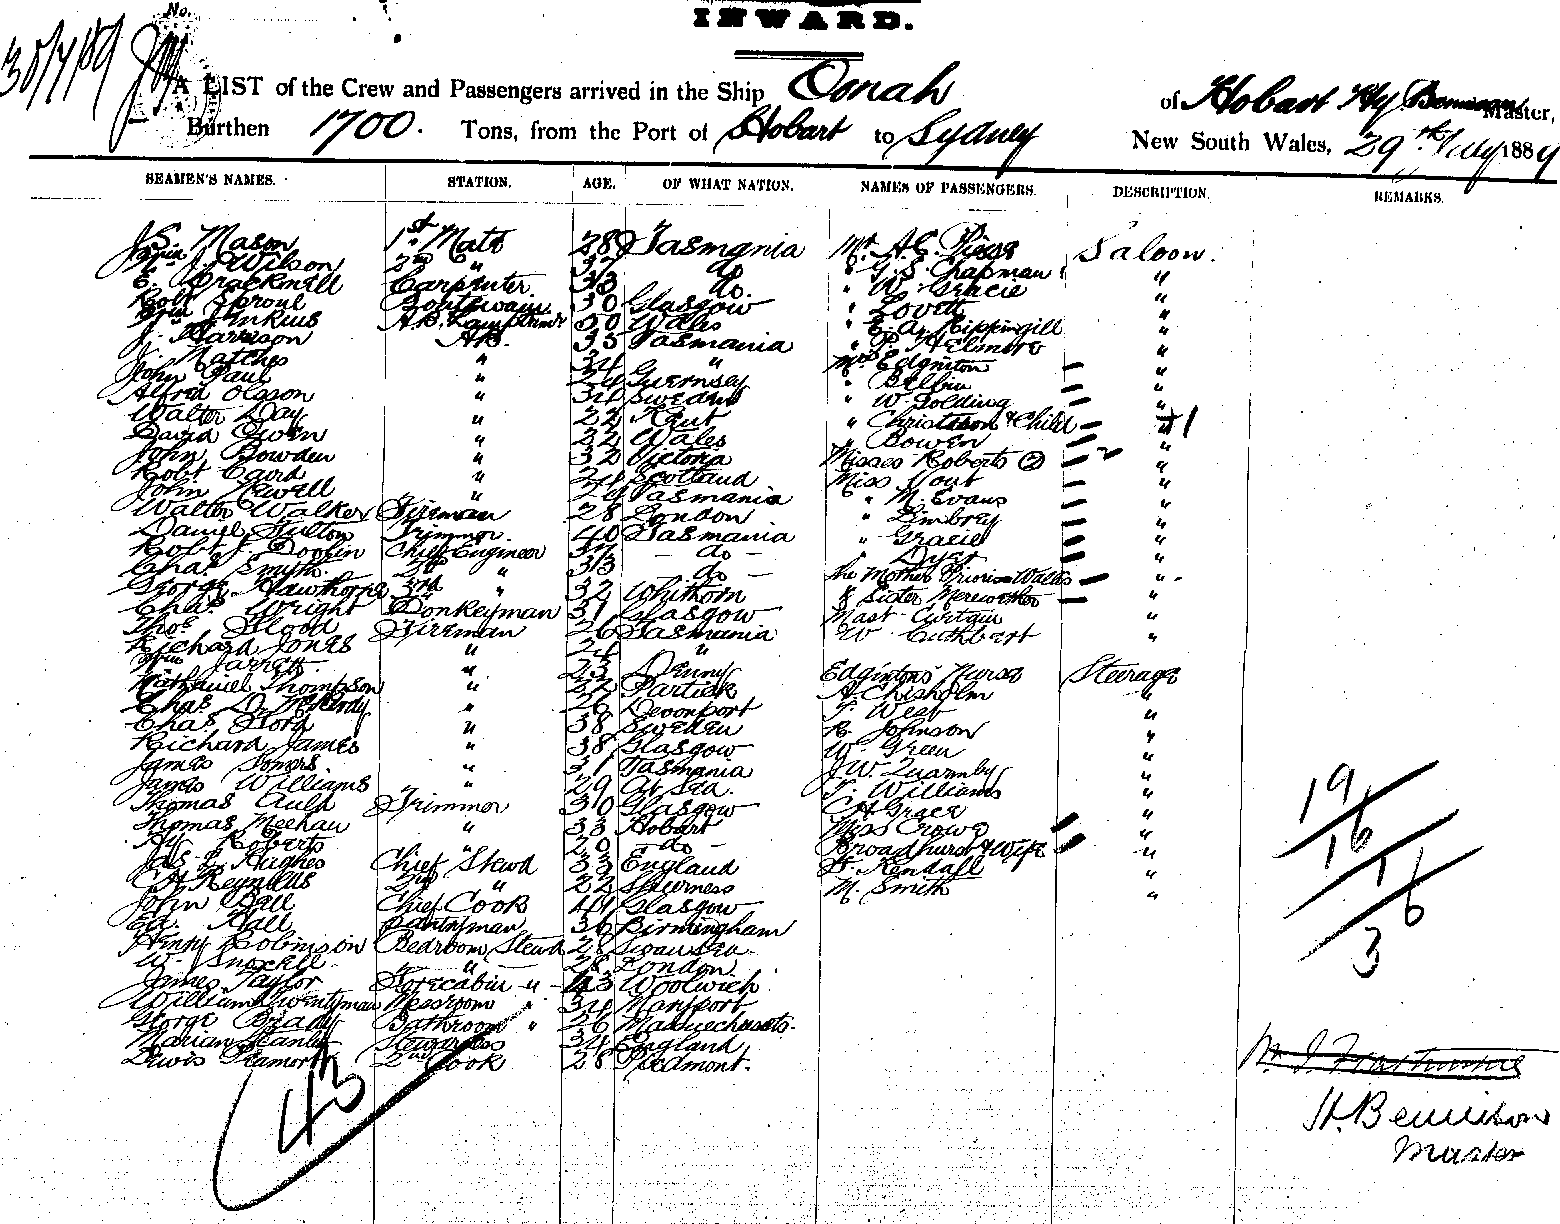 No.
INWARD.
30/7/89
A LIST of the Crew and Passengers arrived in the Ship Oonah of Hobart Hy Bennison Master,
Burthen 1700. Tons, from the Port of Hobart to Sydney New South Wales, 29th July 1889
SEAMEN'S NAMES. STATION. AGE. OF WHAT NATION. NAMES OF PASSENGERS. DESCRIPTION. REMARKS.
J. S. Mason 1st Mate 28 Tasmania Mr A. E. Saloon.
J. Wilson 2nd " 37 do " G. S. Chapman "
C. Brackmill Carpenter 33 do. " W. Gracie "
Robt Sproul Boatswain 30 Glasgow " Lovett "
Wm Jenkins A.B. Lamptrimr 50 Wales " E. A. Rippingill "
J. Harrison A.B. 35 Tasmania " Elmore "
J. Matches " 34 " Mrs Edginton "
John Paul " 24 Guernsey " Belbin "
Alfred Olsson " 34 Sweden " W. Golding "
Walter Day " 22 Kent " Christison & Child " +1
David Owen " 32 Wales " Bowen "
John Bowden " 32 Victoria Misses Roberts (2) 2 "
Robt Caird " 24 Scotland Miss Yout "
John Newell " 24 Tasmania " M. Evans "
Walter Walker Fireman 28 London " Limbrey "
Daniel Fulton Trimmer 40 Tasmania " Gracie "
Robt J. Doolin Chief Engineer 37 - do - " Dyer "
Chas Smyth. 2nd " 33 - do - The Mother Walsh "
George Hawthorne 3rd " 32 Whithorn & Sister Merewether
Chas Wright Donkeyman 31 Glasgow Mast Curtain "
Thos Flood Fireman 26 Tasmania W. Cuthbert "
Richard Jones " 24 "
Wm Jarrett " 23 Denny Edginton's Nurse Steerage
Nathaniel Thompson " 22 Partick A. Chisholm "
Chas D. McHardy " 26 Devonport T. West "
Chas Storg " 38 Sweden R. Johnson "
Richard James " 38 Glasgow W. Green "
James Somers. " 31 Tasmania J. W. Quarmby "
James Williams " 29 At Sea. T. Williams "
Thomas Auld Trimmer 30 Glasgow C. H. Grace "
Thomas Meehan " 33 Hobart Miss Crowe "
Hy Roberts " 20 - do - Broadhurst & Wife "
Jas. E. Hughes Chief Stewd 33 England F. Kendall "
C. H. Reynolds 2nd " 22 Sheerness M. Smith "
John Ball Chief Cook 44 Glasgow
Ed. Hall Pantryman 36 Birmingham
Henry Robinson Bedroom Stewd 28 Swansea
W. Snoxell " " 28 London
James Taylor Forecabin " 43 Woolwich
William Twentyman Messroom " 34 Maryport
George Brady Bathroom " 26 Massachusets.
Marian Stanley Stewardess 34 England
Lewis 2nd Cook 28 Piedmont.
43
19
16
1
6
3
H. Bennison
Master